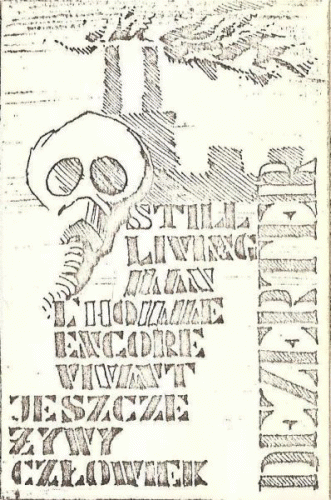 STILL
LIVING
MAN
L'HOMME
ENCORE
VIVANT
JESZCZE
ŻYWY
CZŁOWIEK
DEZERTER